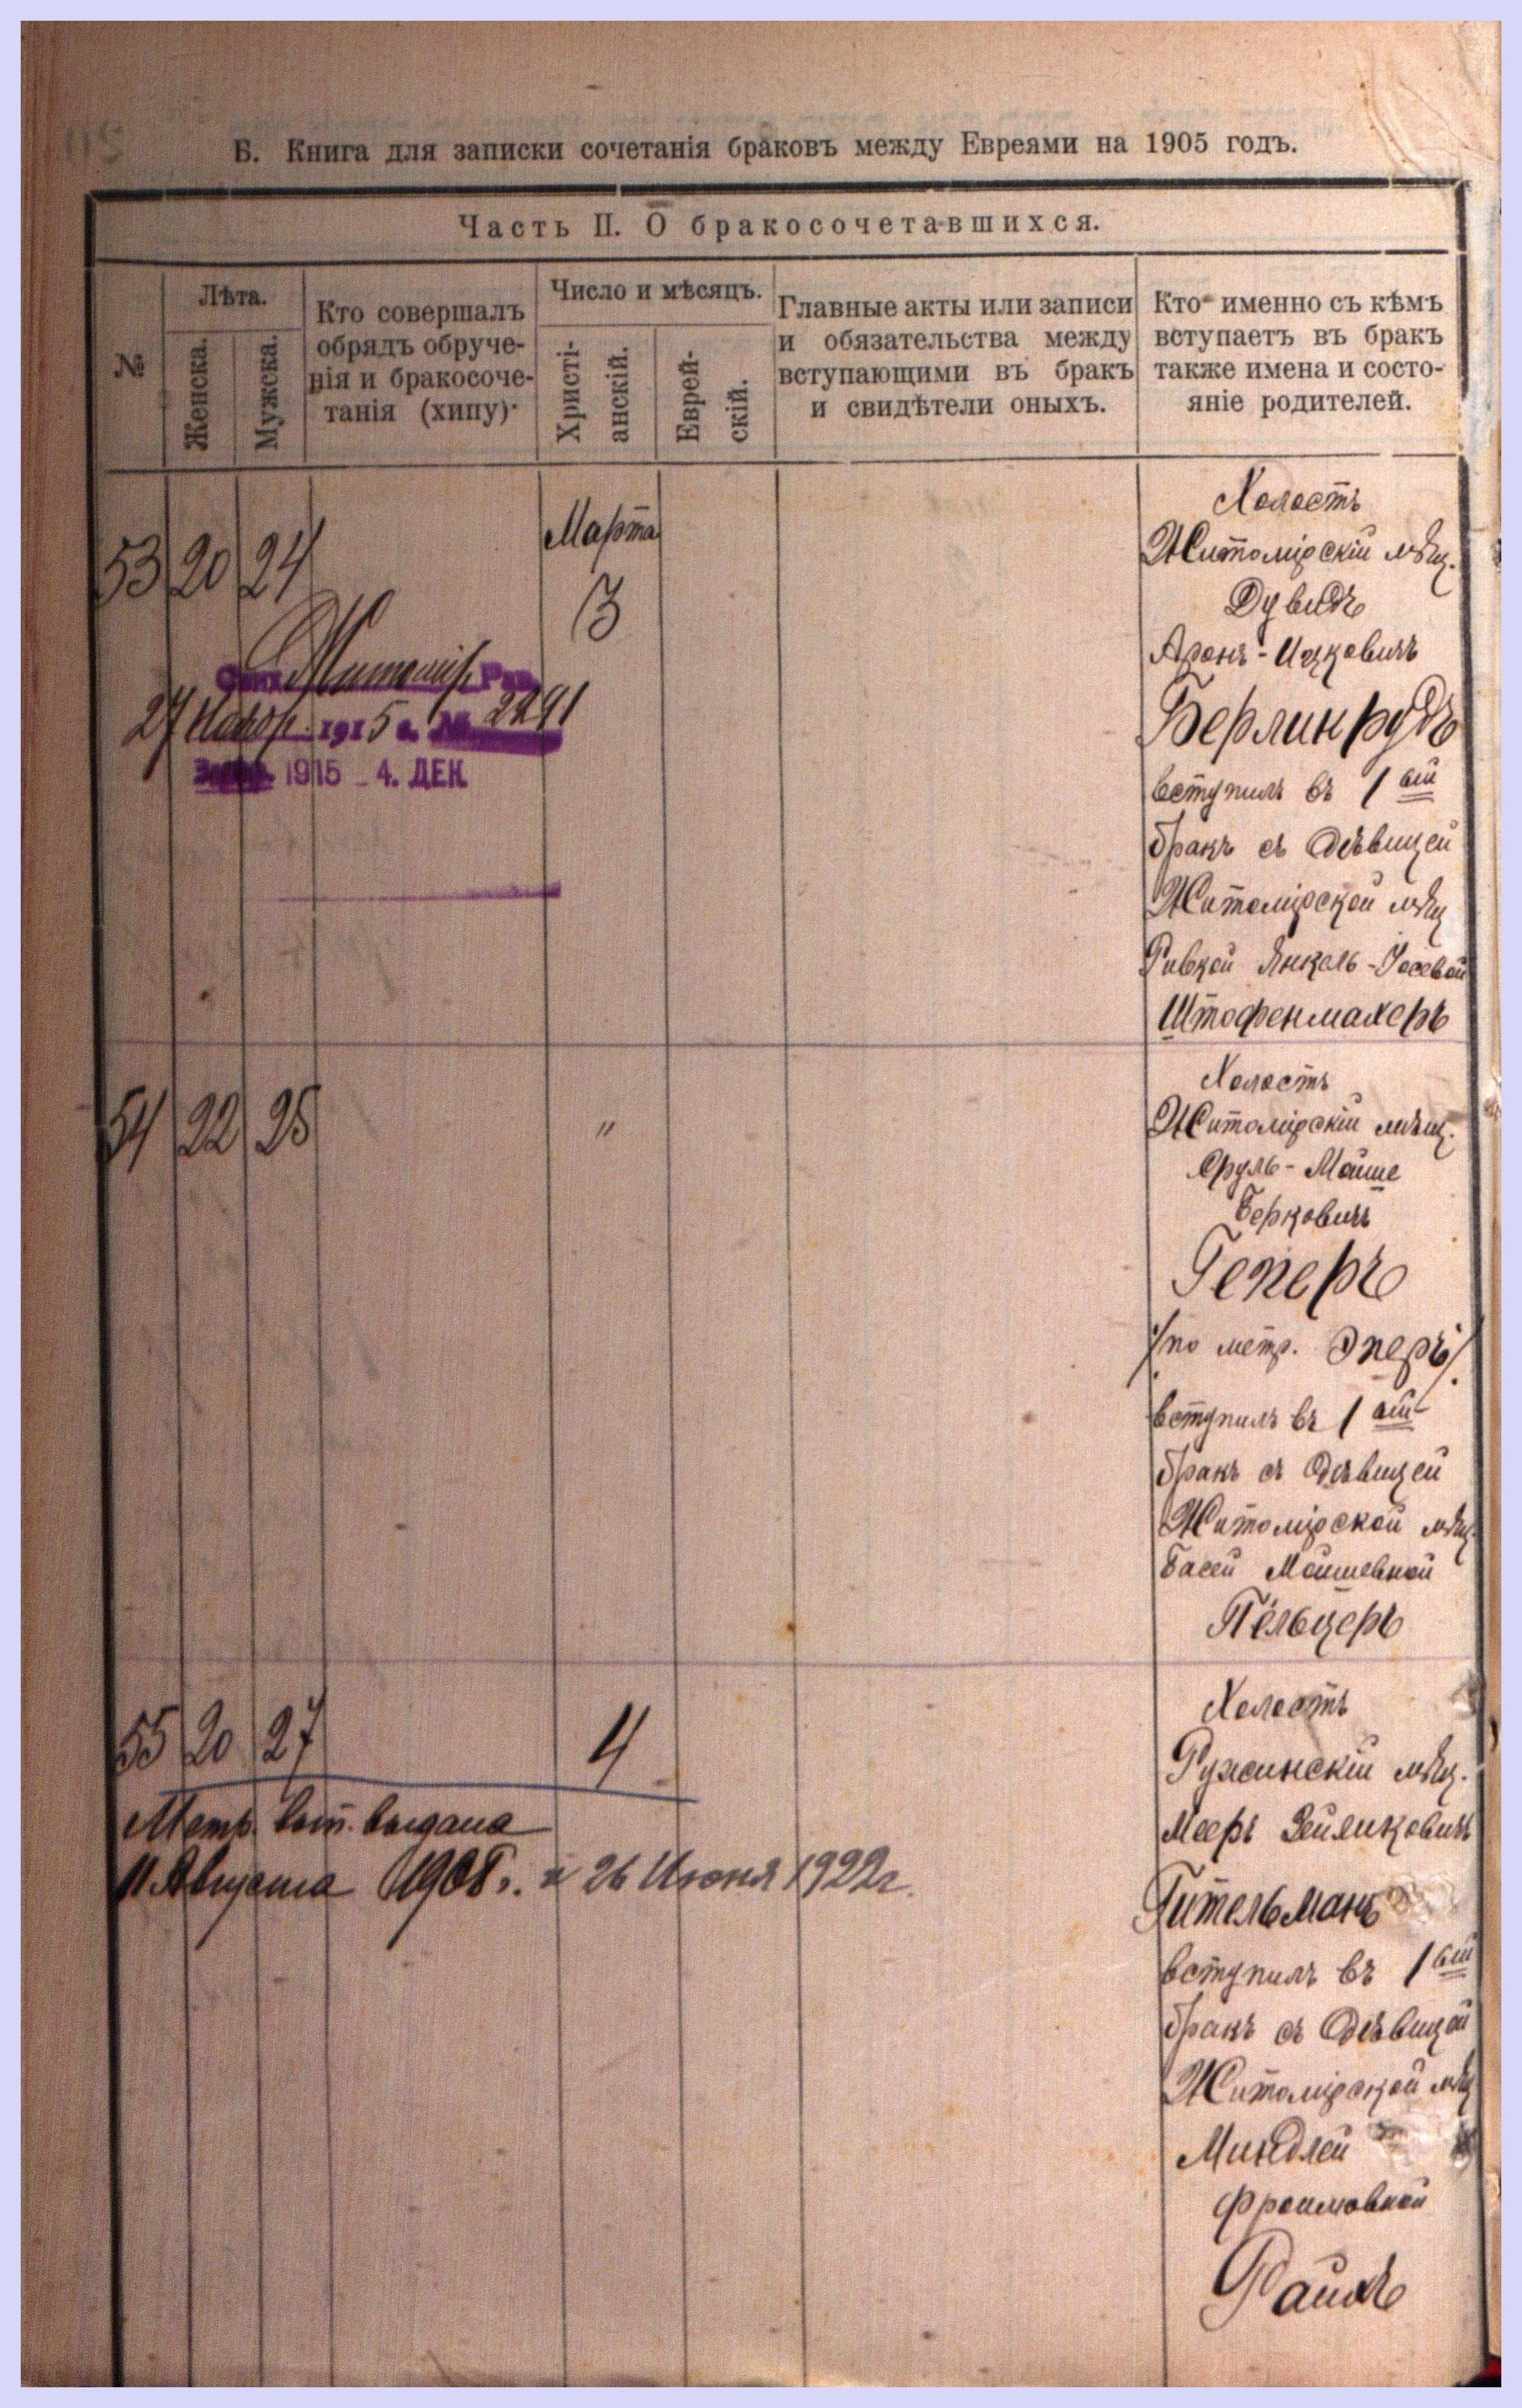 Б. Книга для записки сочетанія браковъ между Евреями на 1905 годъ.
Часть II. О бракосочетавшихся.
№
Лѣта.
Женска.
Мужска.
Кто совершалъ
обрядъ обруче-
нія и бракосоче-
танія (хипу)
Число и мѣсяцъ.
Христі-
анскій.
Еврей-
скій.
Главные акты или записи
и обязательства между
вступающими въ бракъ
и свидѣтели оныхъ.
Кто именно съ кѣмъ
вступаетъ въ бракъ
также имена и состо-
яніе родителей.
53 20 24
Марта
3
Житомір. Рав.
27 Нояб. 1915 г. № 2291
1915 - 4. ДЕК.
Холостъ
Житомірскій мѣщ.
Дувидъ
Аронъ-Ицковичъ
Берлинрудъ
вступилъ въ 1 ый
бракъ съ дѣвицей
Житомірской мѣщ
Ривкой Янкель-Іосевой
Штофенмахеръ
54 22 25
"
Холостъ
Житомірскій мѣщ.
Сруль-Мойше
Берковичъ
Геперъ
/по метр. Эперъ/.
вступилъ въ 1 ый
бракъ съ дѣвицей
Житомірской мѣщ.
Басей Мошневной
Пельцеръ
55 20 27
4
Метр. вып. выдана
11 Августа 1908 г. и 26 Июня 1922 г.
Холостъ
Ружинскій мѣщ.
Мееръ Зейликовичъ
Гительманъ
вступилъ въ 1 ый
бракъ съ дѣвицей
Житомірской мѣщ
Миндлей
Фроимовной
Райхъ